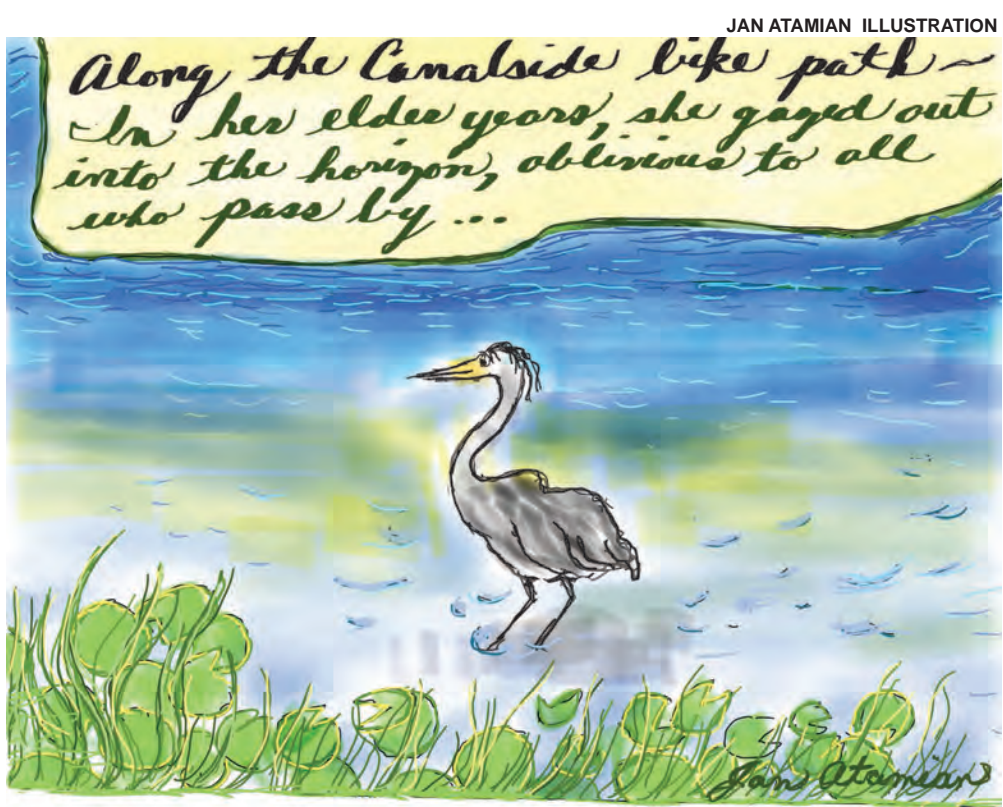 JAN ATAMIAN ILLUSTRATION
Along the Canalside bike path ~
In her elder years, she gazed out
into the horizon, oblivious to all
who pass by ...
Jan Atamian